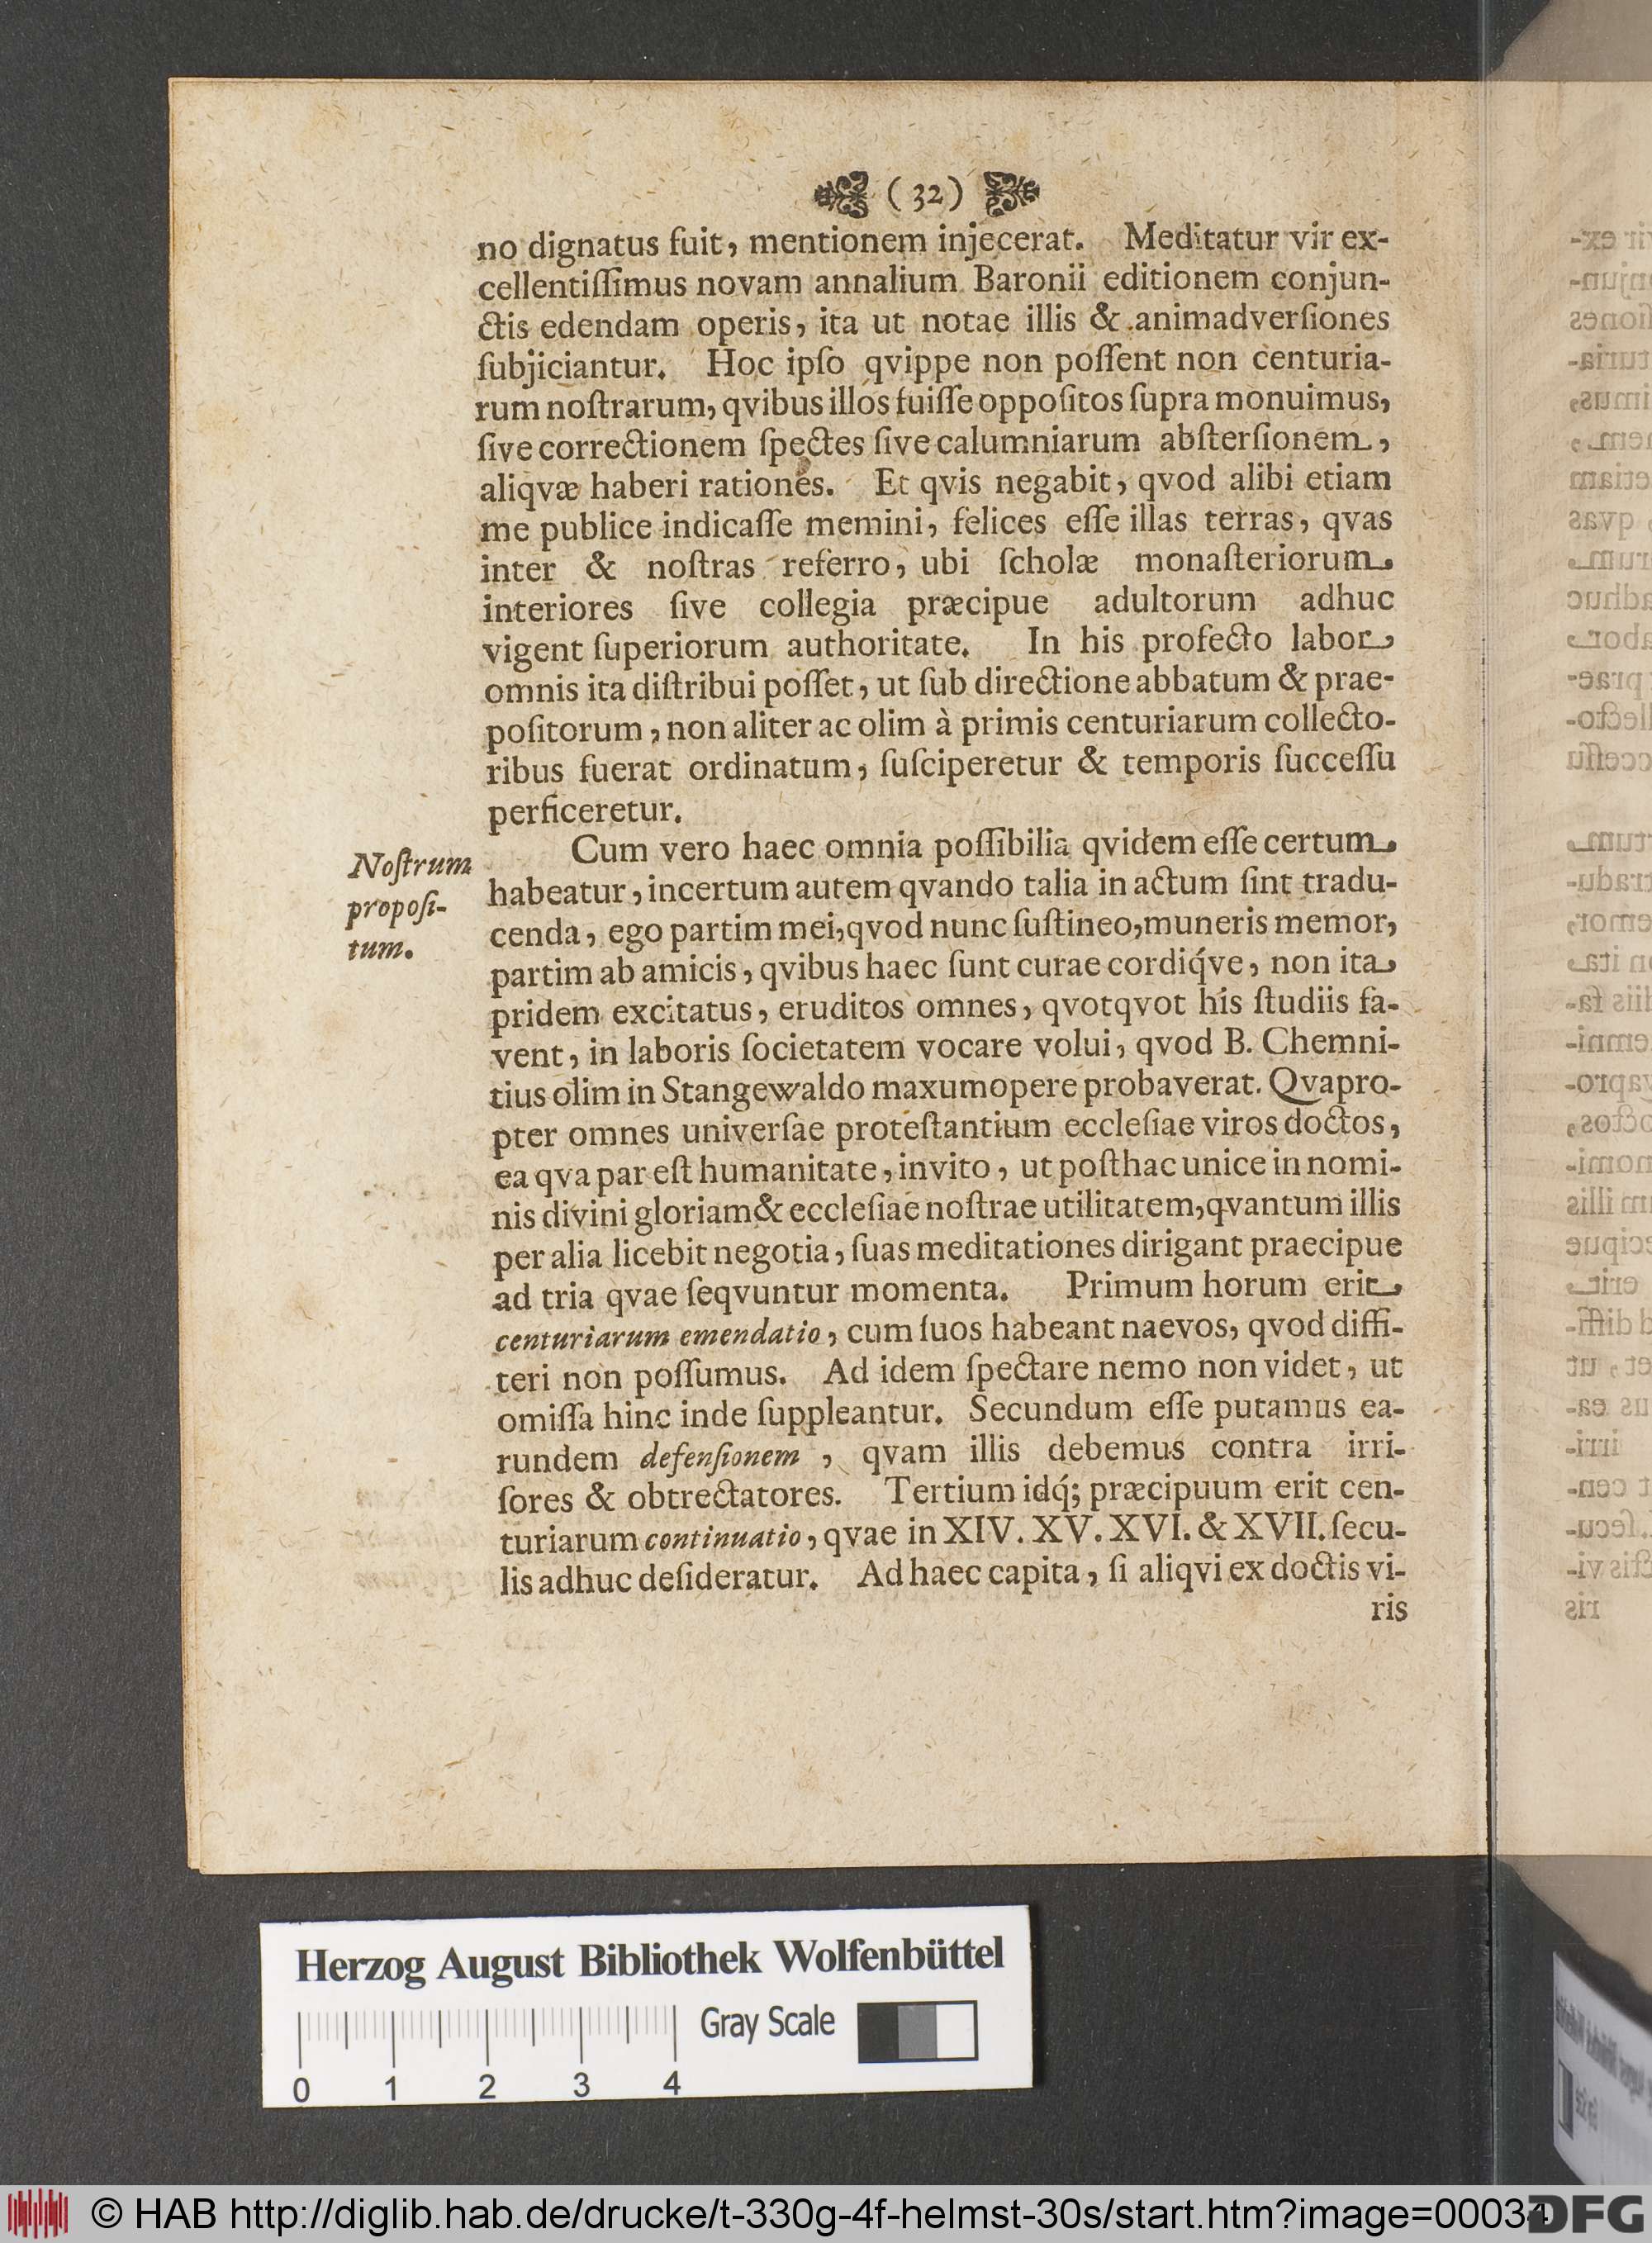 (32)
no dignatus fuit, mentionem injecerat. Meditatur vir ex-
cellentiſſimus novam annalium Baronii editionem conjun-
ctis edendam operis, ita ut notae illis & animadverſiones
ſubjiciantur. Hoc ipſo qvippe non poſſent non centuria-
rum noſtrarum, qvibus illos fuiſſe oppoſitos ſupra monuimus,
ſive correctionem ſpectes ſive calumniarum abſterſionem,
aliqvæ haberi rationes. Et qvis negabit, qvod alibi etiam
me publice indicaſſe memini, felices eſſe illas terras, qvas
inter & noſtras referro, ubi ſcholæ monaſteriorum
interiores ſive collegia præcipue adultorum adhuc
vigent ſuperiorum authoritate. In his profecto labor
omnis ita diſtribui poſſet, ut ſub directione abbatum & prae-
poſitorum, non aliter ac olim à primis centuriarum collecto-
ribus fuerat ordinatum, ſuſciperetur & temporis ſucceſſu
perficeretur.
Noſtrum
propoſi-
tum.
Cum vero haec omnia poſſibilia qvidem eſſe certum
habeatur, incertum autem qvando talia in actum ſint tradu-
cenda, ego partim mei, qvod nunc ſuſtineo, muneris memor,
partim ab amicis, qvibus haec ſunt curae cordiq́ve, non ita
pridem excitatus, eruditos omnes, qvotqvot his ſtudiis fa-
vent, in laboris ſocietatem vocare volui, qvod B. Chemni-
tius olim in Stangewaldo maxumopere probaverat. Qvapro-
pter omnes univerſae proteſtantium eccleſiae viros doctos,
ea qva par eſt humanitate, invito, ut poſthac unice in nomi-
nis divini gloriam & eccleſiae noſtrae utilitatem, qvantum illis
per alia licebit negotia, ſuas meditationes dirigant praecipue
ad tria qvae ſeqvuntur momenta. Primum horum erit
centuriarum emendatio, cum ſuos habeant naevos, qvod diffi-
teri non poſſumus. Ad idem ſpectare nemo non videt, ut
omiſſa hinc inde ſuppleantur. Secundum eſſe putamus ea-
rundem defenſionem, qvam illis debemus contra irri-
ſores & obtrectatores. Tertium idq́; præcipuum erit cen-
turiarum continuatio, qvae in XIV. XV. XVI. & XVII. ſecu-
lis adhuc deſideratur. Ad haec capita, ſi aliqvi ex doctis vi-
ris
Herzog August Bibliothek Wolfenbüttel
Gray Scale
0 1 2 3 4
© HAB http://diglib.hab.de/drucke/t-330g-4f-helmst-30s/start.htm?image=00034
DFG